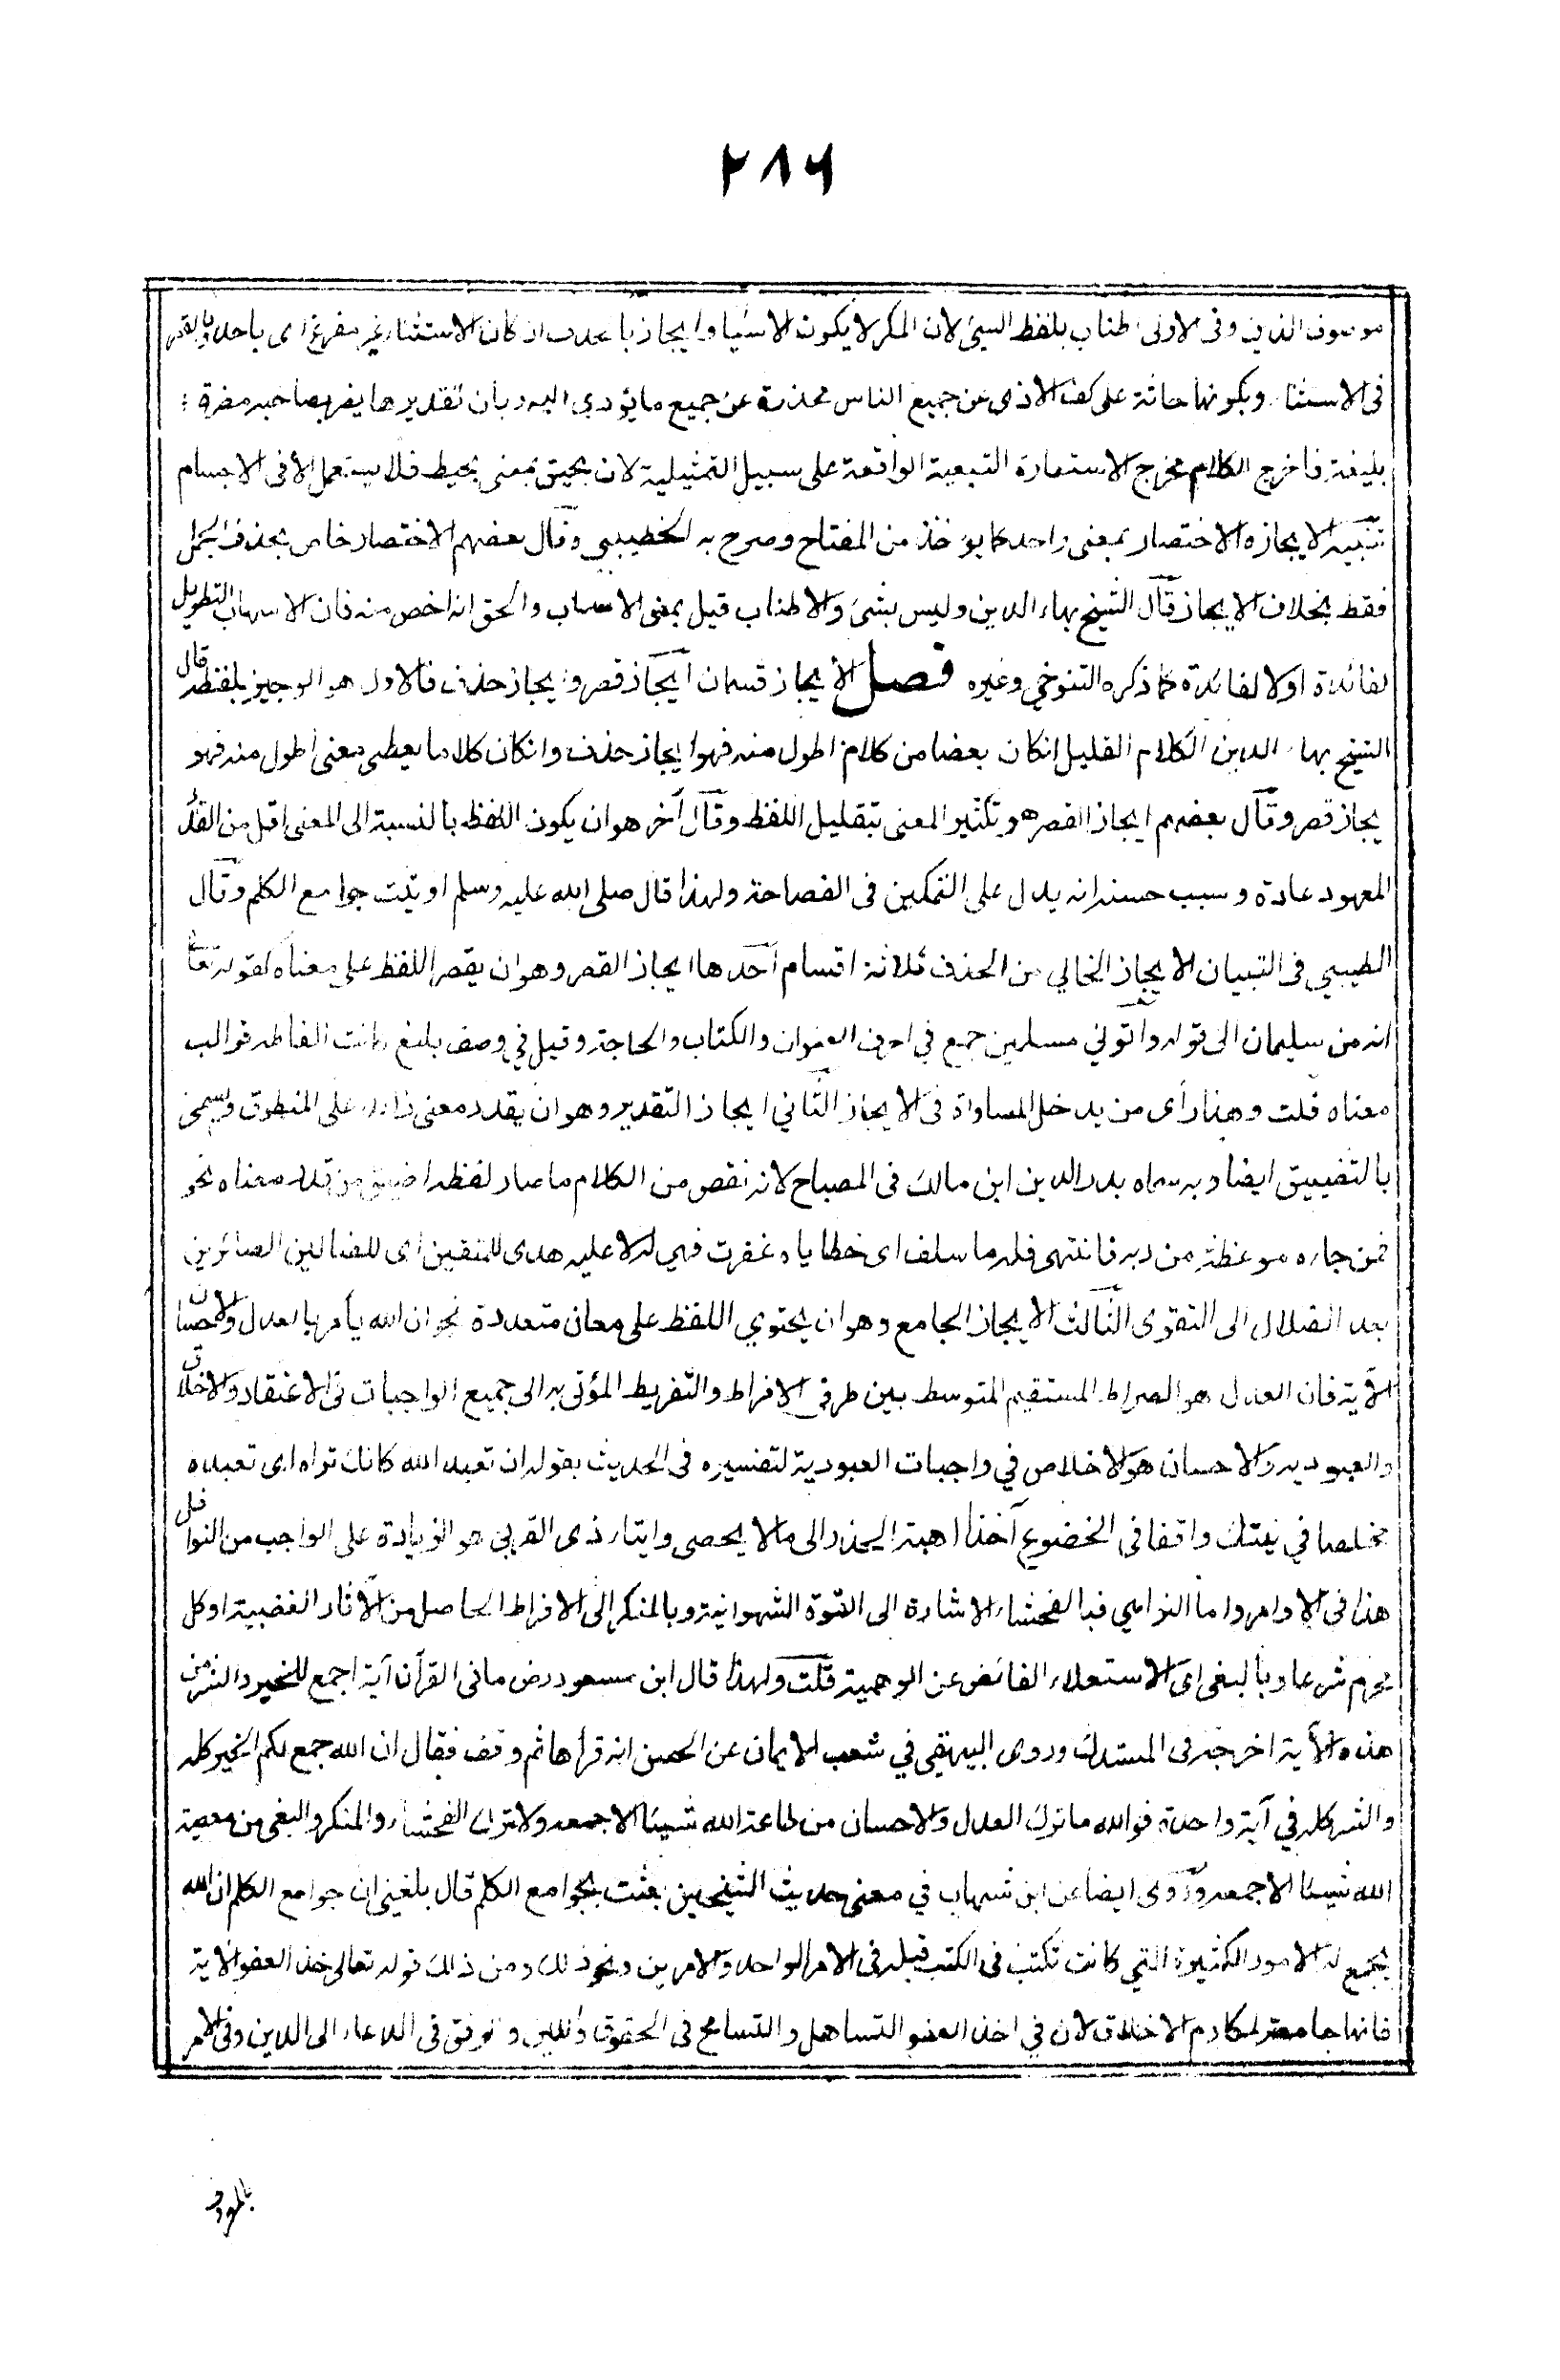 ٢٨٦
موصوف الذي وفى الاولى اطناب بلفظ السيئ لان المكر لا يكون الا سيئا وايجاز بالحذف ان كان الاستثناء غير مفرغ اى باحد وبالقصر
فى الاستثناء وبكونها حاثة على كف الاذى عن جميع الناس محذرة عن جميع ما يؤدي اليه وبان تقديرها يضر بصاحبه مضرة
بليغة فاخرج الكلام مخرج الاستعارة التبعية الواقعة على سبيل التمثيلية لان يحيق بمعنى يحيط فلا يستعمل الا فى الاجسام
تنبيه الايجاز والاختصار بمعنى واحد كما يؤخذ من المفتاح وصرح به الطيبي وقال بعضهم الاختصار خاص بحذف الجمل
فقط بخلاف الايجاز قال الشيخ بهاء الدين وليس بشئ والاطناب قيل بمعنى الاسهاب والحق انه اخص منه فان الاسهاب التطويل
لفائدة او لا لفائدة كما ذكره التنوخي وغيره فصل الايجاز قسمان ايجاز قصر وايجاز حذف فالاول هو الوجيز بلفظه قال
الشيخ بهاء الدين الكلام القليل ان كان بعضا من كلام اطول منه فهو ايجاز حذف وان كان كلاما يعطى معنى اطول منه فهو
يجاز قصر وقال بعضهم ايجاز القصر هو تكثير المعنى بتقليل اللفظ وقال آخر هو ان يكون اللفظ بالنسبة الى المعنى اقل من القدر
المعهود عادة وسبب حسنه انه يدل على التمكين فى الفصاحة ولهذا قال صلى الله عليه وسلم اوتيت جوامع الكلم وقال
الطيبي فى التبيان الايجاز الخالي من الحذف ثلاثة اقسام احدها ايجاز القصر وهو ان يقصر اللفظ على معناه كقوله تعا
انه من سليمان الى قوله واتوني مسلمين جمع في احرف العنوان والكتاب والحاجة وقيل في وصف بليغ كانت الفاظه قوالب
معناه قلت وهذا رأى من يدخل المساواة فى الايجاز الثاني ايجاز التقدير وهو ان يقدر معنى زائد على المنطوق ويسمى
بالتضييق ايضا وبه سماه بدر الدين ابن مالك فى المصباح لانه نقص من الكلام ما صار لفظه اضيق من قدر معناه نحو
فمن جاءه موعظة من ربه فانتهى فله ما سلف اى خطاياه غفرت فهي له لا عليه هدى للمتقين اى للضالين الصائرين
بعد الضلال الى التقوى الثالث الايجاز الجامع وهو ان يحتوي اللفظ على معان متعددة نحو ان الله يأمر بالعدل والاحسان
الآية فان العدل هو الصراط المستقيم المتوسط بين طرفى الافراط والتفريط المؤتى به الى جميع الواجبات فى الاعتقاد والاخلاق
والعبودية والاحسان هو الاخلاص في واجبات العبودية لتفسيره فى الحديث بقوله ان تعبد الله كانك تراه اى تعبده
مخلصا في نيتك واقفا فى الخضوع آخذا اهبة الحذر الى ما لا يحصى وايتاء ذى القربى هو الزيادة على الواجب من النوافل
هذا فى الاوامر واما النواهي فبالفحشاء الاشارة الى القوة الشهوانية وبالمنكر الى الافراط الحاصل من آثار الغضبية او كل
محرم شرعا وبالبغى اى الاستعلاء الفائض عن الوهمية قلت ولهذا قال ابن مسعود رض ما فى القرآن آية اجمع للخير والشر من
هذه الآية اخرجه فى المستدرك وروى البيهقي في شعب الايمان عن الحسن انه قرأها ثم وقف فقال ان الله جمع لكم الخير كله
والشر كله في آية واحدة فوالله ما ترك العدل والاحسان من طاعة الله شيئا الا جمعه ولا ترك الفحشاء والمنكر والبغى من معصية
الله شيئا الا جمعه وروى ايضا عن ابن شهاب في معنى حديث الشيخين بعثت بجوامع الكلم قال بلغني ان جوامع الكلم ان الله
يجمع له الامور الكثيرة التي كانت تكتب فى الكتب قبله فى الامر الواحد والامرين ونحو ذلك ومن ذلك قوله تعالى خذ العفو الآية
فانها جامعة لمكارم الاخلاق لان في اخذ العفو التساهل والتسامح فى الحقوق واللين والرفق فى الدعاء الى الدين وفى الامر
بالمعروف